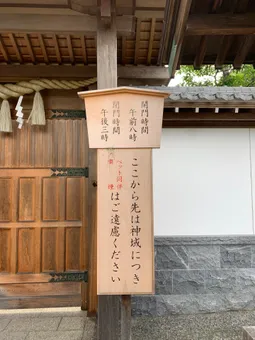 開門時間
午前八時
閉門時間
午後三時
ここから先は神域につき
ペット同伴
はご遠慮ください